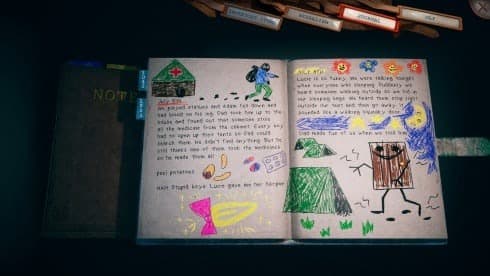 JOURNAL
MAP
NOTE
July 8th
We played statues and Adam fell down and
had blood on his leg. Dad took him up to the
house and found out that someone stole
all the medicine from the cabinet. Every boy
had to open up their tents so Dad could
search them. He didn't find anything. But he
still thinks one of them took the medicines
so he made them all
peel potatoes
Haha Stupid boys. Lucie gave me her
Lucie is so funny. We were telling
when everyone was sleeping. Suddenly we
heard someone walking outside as we hid in
our sleeping bags. We heard them stop right
outside our tent and then go away. It
sounded like a walking squeaky
Dad made fun of us when we told him